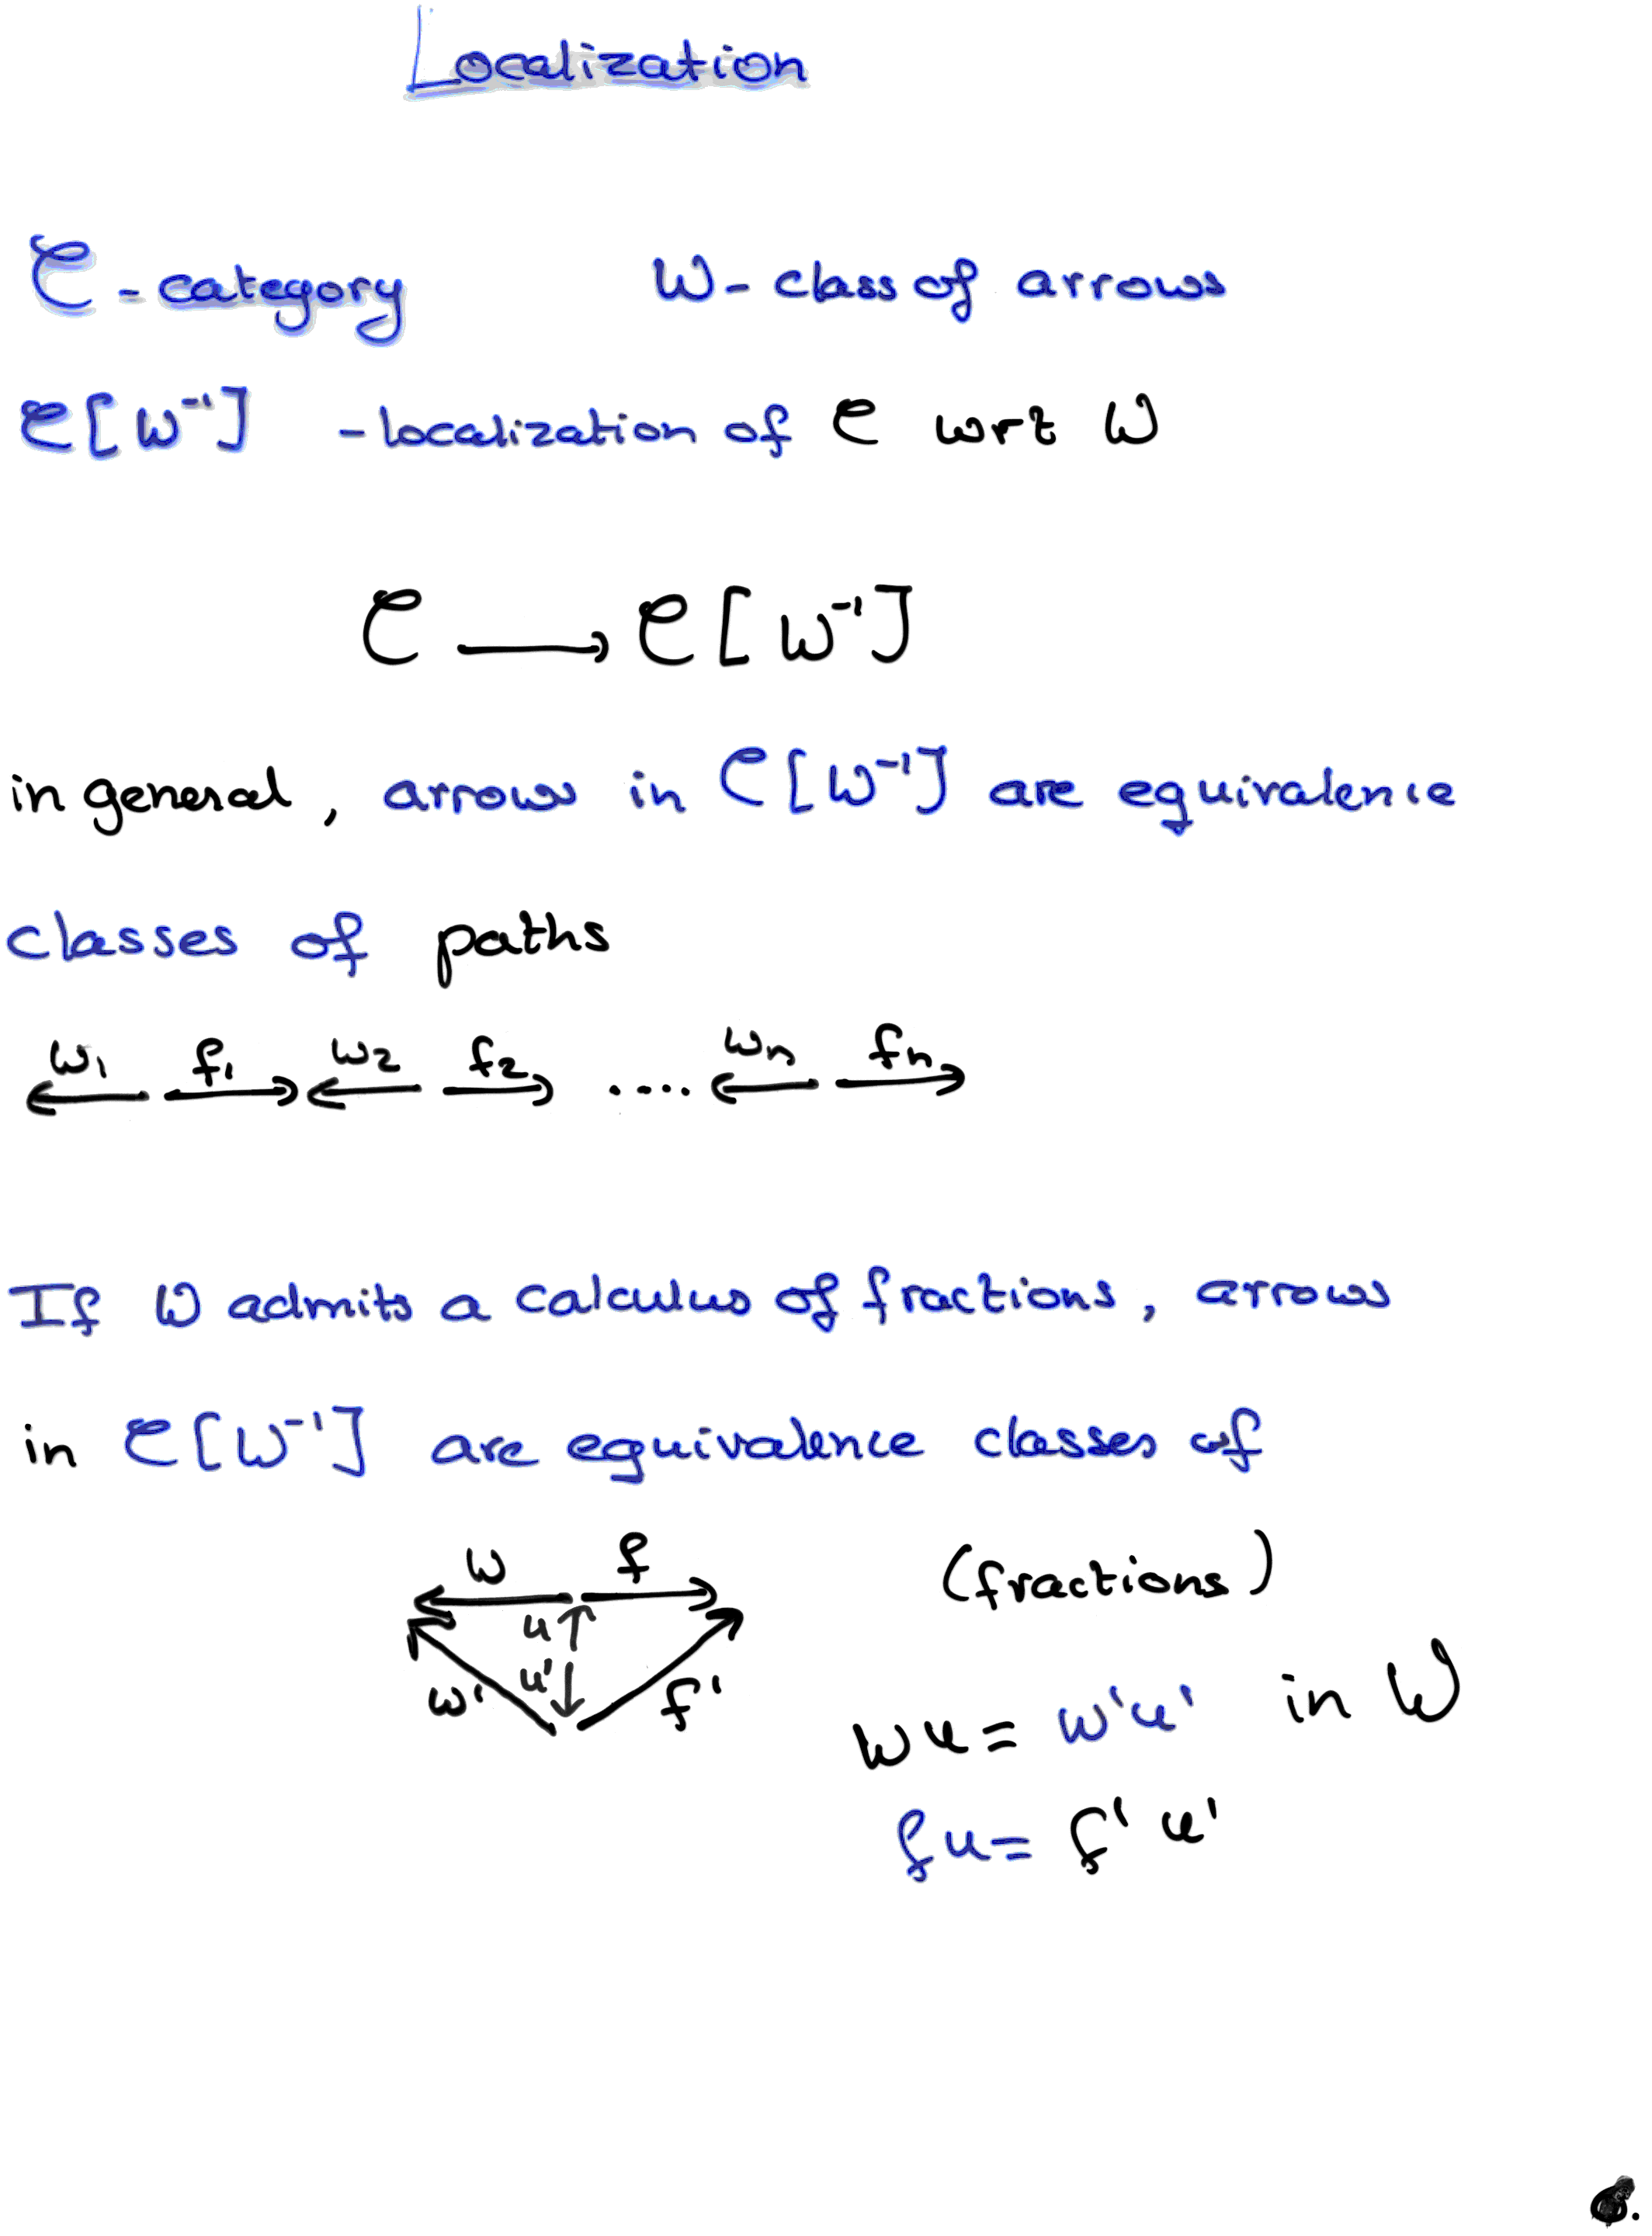 Localization
𝒞 - category W - class of arrows
𝒞[W⁻¹] - localization of 𝒞 wrt W
𝒞 → 𝒞[W⁻¹]
in general, arrows in 𝒞[W⁻¹] are equivalence
classes of paths
w₁ f₁ w₂ f₂ .... wn fn
If W admits a calculus of fractions, arrows
in 𝒞[W⁻¹] are equivalence classes of
w f (fractions)
u
u'
w' f'
wu = w'u' in W
fu = f'u'